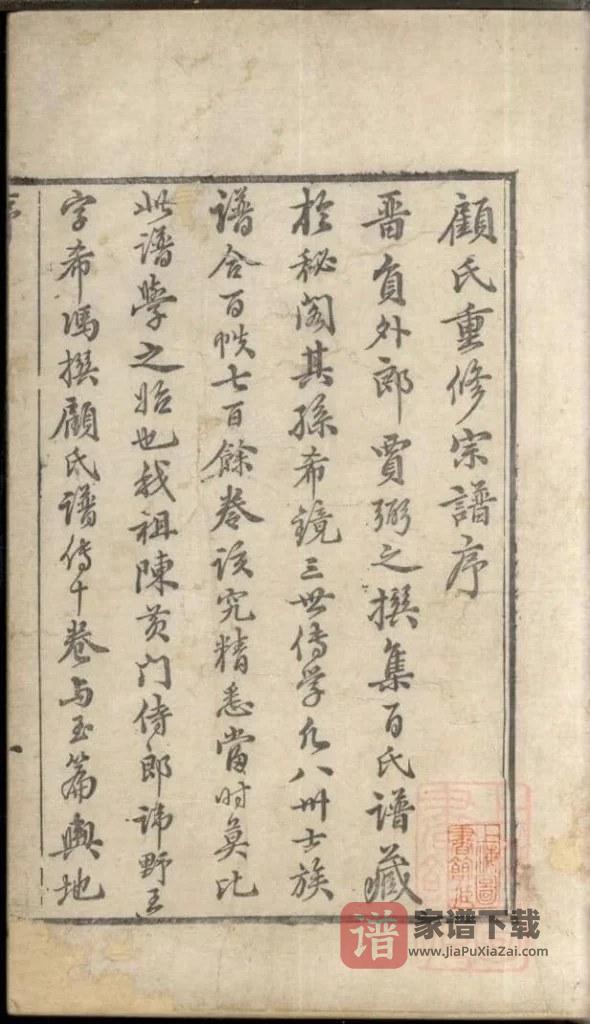 顧氏重修宗譜序
晉負外郎賈弼之撰集百氏譜藏
於秘閣其孫希鏡三世传学凡八卅士族
譜合百帙七百餘卷该究精悉當时莫比
此譜學之始也我祖陳黄门侍郎諱野王
字希馮撰顧氏譜傳十卷与玉篇輿地
上海圖
書館藏
譜
家谱下载
www.JiaPuXiaZai.com